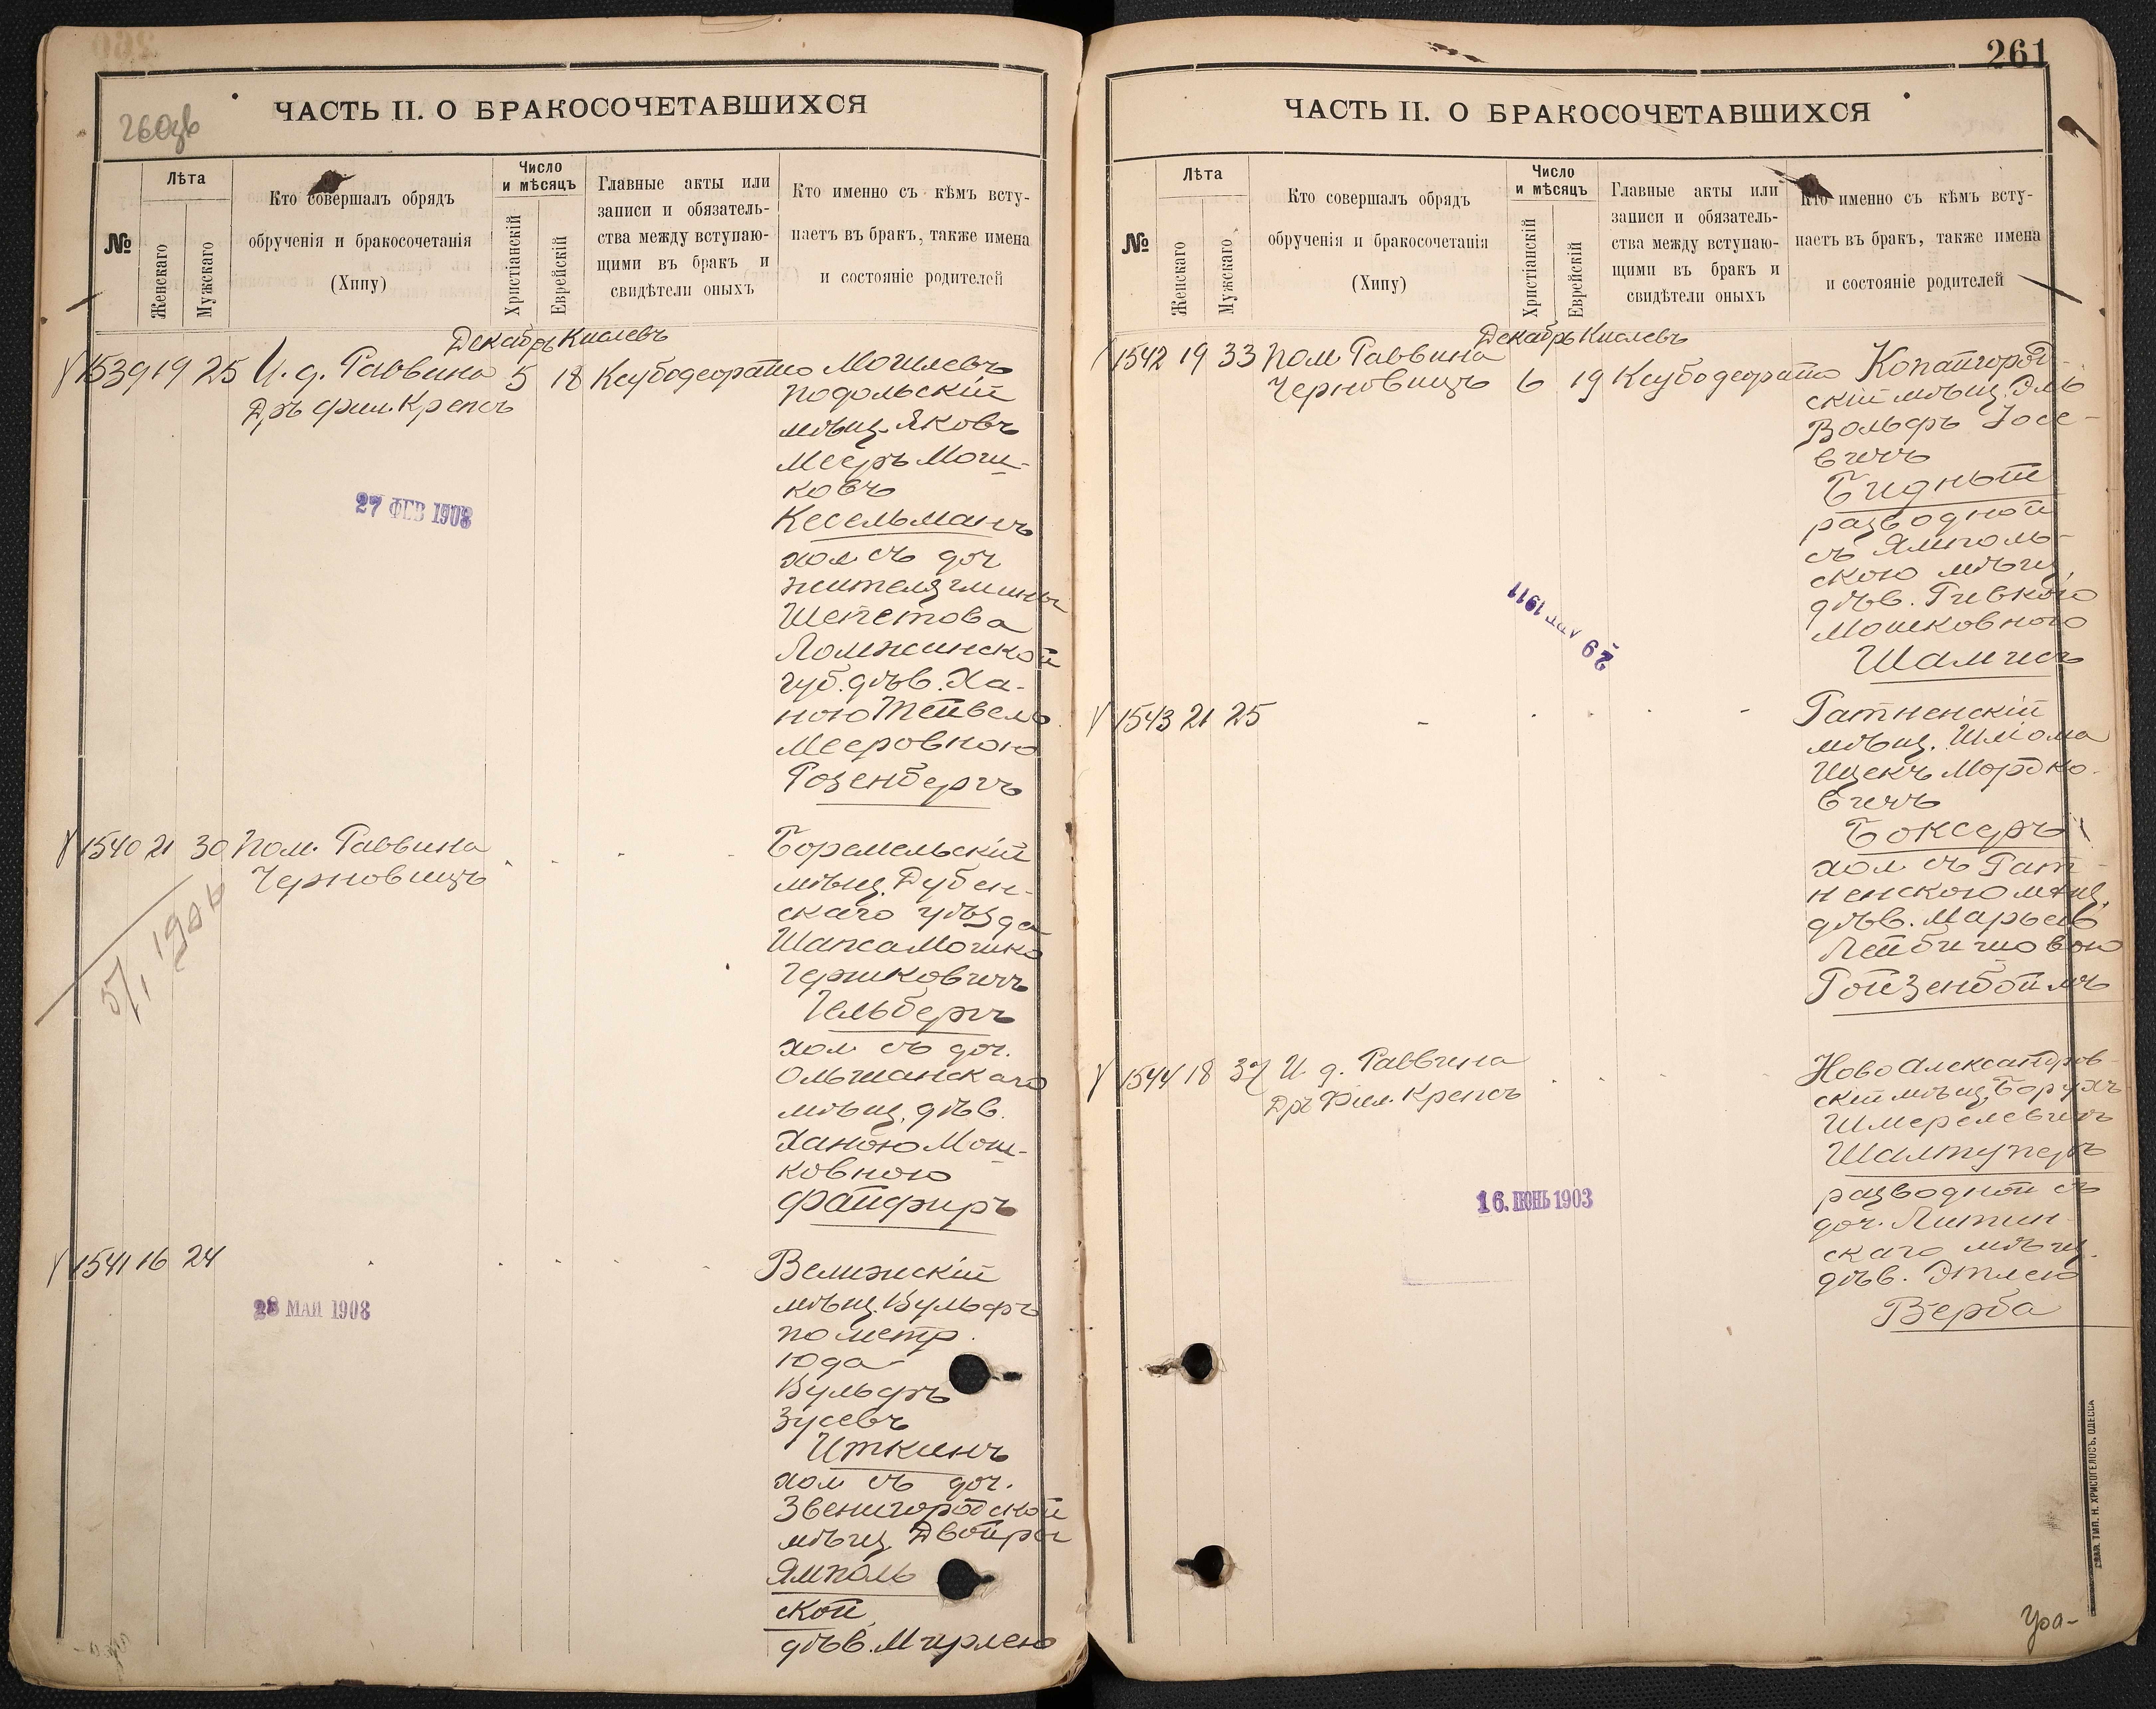 260зв
ЧАСТЬ II. О БРАКОСОЧЕТАВШИХСЯ
№
Лѣта
Женскаго
Мужскаго
Кто совершалъ обрядъ
обрученія и бракосочетанія
(Хипу)
Число
и мѣсяцъ
Христіанскій
Еврейскій
Главные акты или
записи и обязатель-
ства между вступаю-
щими въ бракъ и
свидѣтели оныхъ
Кто именно съ кѣмъ всту-
паетъ въ бракъ, также имена
и состояніе родителей
Декабрь Кислевъ
1539 19 25 И. д. Раввина 5 18 Ксубодеорато Могилевъ
Дръ фил. Крепсъ
Подольскій
мѣщ. Яковъ
Мееръ Мош-
ковъ
Кесельманъ
хол съ доч
жителя гмины
Шепетова
Ломжинской
губ. дѣв. Ха-
ною Тейвель
Мееровною
Розенбергъ
27 ФЕВ 1908
1540 21 30 Пом. Раввина
Черновицъ
Боремельскій
мѣщ. Дубен-
скаго уѣзда
Шапса Мошко
Гершковичъ
Гельбергъ
хол съ доч.
Ольшанскаго
мѣщ. дѣв.
Ханою Мош-
ковною
Файфиръ
1541 16 24
28 МАЯ 1908
Велижскій
мѣщ. Вульфъ
по метр.
Юда
Вульфъ
Зусевъ
Иткинъ
хол съ доч.
Звенигородской
мѣщ. Двойры
Ямполь
ской
дѣв. Мирлею
261
ЧАСТЬ II. О БРАКОСОЧЕТАВШИХСЯ
№
Лѣта
Женскаго
Мужскаго
Кто совершалъ обрядъ
обрученія и бракосочетанія
(Хипу)
Число
и мѣсяцъ
Христіанскій
Еврейскій
Главные акты или
записи и обязатель-
ства между вступаю-
щими въ бракъ и
свидѣтели оныхъ
Кто именно съ кѣмъ всту-
паетъ въ бракъ, также имена
и состояніе родителей
Декабрь Кислевъ
1542 19 33 Пом. Раввина
Черновицъ 6 19 Ксубодеорато Копайгород-
скій мѣщ. Эль
Вольфъ Іосе-
вичъ
Бидный
разводной
съ Ямполь-
скою мѣщ.
дѣв. Ривкою
Мошковною
Шамисъ
1911
29
1543 21 25
Ратненскій
мѣщ. Шліома
Ицекъ Мордко-
вичъ
Боксеръ
хол съ Рат-
ненскою мѣщ.
дѣв. Марьею
Лейбишовою
Ройзенбоймъ
1544 18 37 И. д. Раввина
Дръ Фил. Крепсъ
16. ІЮНЬ 1903
Ново Александров-
скій мѣщ. Борухъ
Шмерелевичъ
Шалтуперъ
разводной съ
доч. Литин-
скаго мѣщ.
дѣв. Этлею
Верба
ГЛАВ. ТИП. Н. ХРИСОГЕЛОСЪ. ОДЕССА